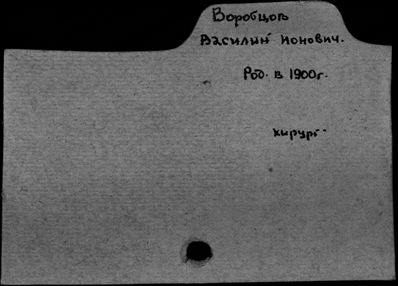 Воробцов
Василий Ионович.
Род. в 1900г.
хирург.